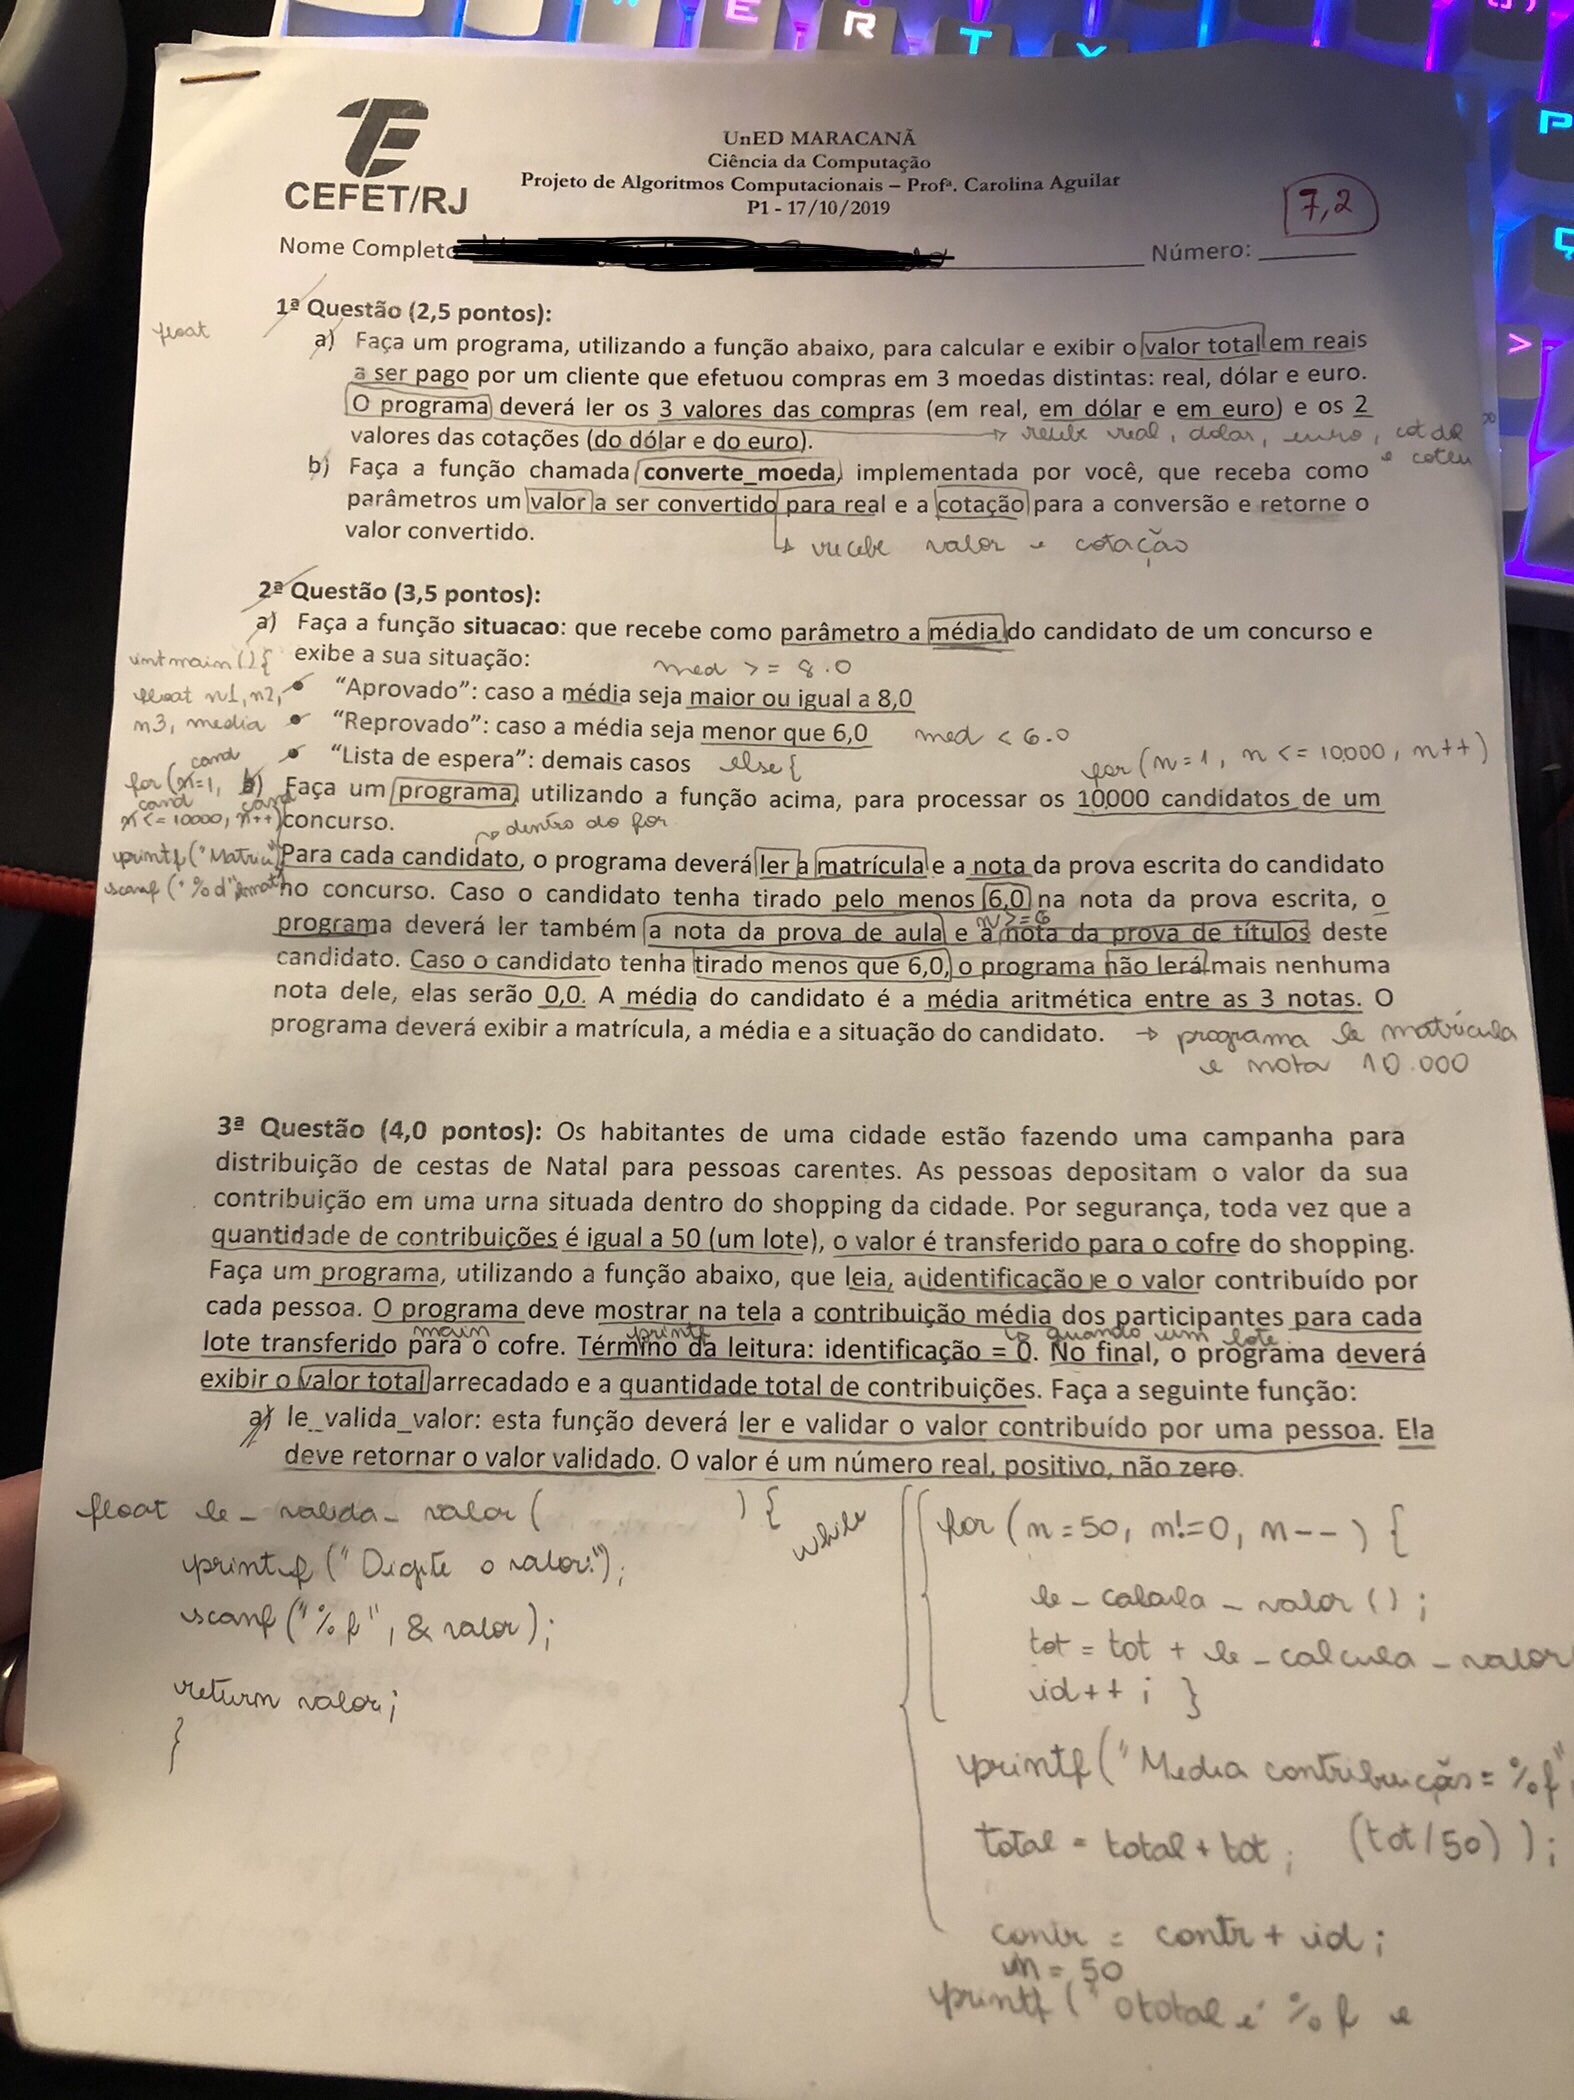 E R T Y
P
Ç
>
CEFET/RJ
UnED MARACANÃ
Ciência da Computação
Projeto de Algoritmos Computacionais – Profª. Carolina Aguilar
P1 - 17/10/2019
7,2
Nome Completo
Número:
1ª Questão (2,5 pontos):
float
a) Faça um programa, utilizando a função abaixo, para calcular e exibir o valor total em reais
a ser pago por um cliente que efetuou compras em 3 moedas distintas: real, dólar e euro.
O programa deverá ler os 3 valores das compras (em real, em dólar e em euro) e os 2
valores das cotações (do dólar e do euro).
→ recebe real, dolar, euro, cotdol
e coteu
b) Faça a função chamada converte_moeda, implementada por você, que receba como
parâmetros um valor a ser convertido para real e a cotação para a conversão e retorne o
valor convertido.
↳ recebe valor e cotação
2ª Questão (3,5 pontos):
a) Faça a função situacao: que recebe como parâmetro a média do candidato de um concurso e
exibe a sua situação:
med >= 8.0
int main () {
float n1, n2,
n3, media
• “Aprovado”: caso a média seja maior ou igual a 8,0
• “Reprovado”: caso a média seja menor que 6,0 med < 6.0
• “Lista de espera”: demais casos else {
for (n=1, n <= 10000, n++)
cand
for (n=1,
cand cand
n<=10000, n++)
b) Faça um programa, utilizando a função acima, para processar os 10000 candidatos de um
concurso.
→ dentro do for
printf("Matric"
scanf("%d"&mat)
Para cada candidato, o programa deverá ler a matrícula e a nota da prova escrita do candidato
no concurso. Caso o candidato tenha tirado pelo menos 6,0 na nota da prova escrita, o
n>=6
programa deverá ler também a nota da prova de aula e a nota da prova de títulos deste
candidato. Caso o candidato tenha tirado menos que 6,0, o programa não lerá mais nenhuma
nota dele, elas serão 0,0. A média do candidato é a média aritmética entre as 3 notas. O
programa deverá exibir a matrícula, a média e a situação do candidato.
→ programa le matrícula
e nota 10.000
3ª Questão (4,0 pontos): Os habitantes de uma cidade estão fazendo uma campanha para
distribuição de cestas de Natal para pessoas carentes. As pessoas depositam o valor da sua
contribuição em uma urna situada dentro do shopping da cidade. Por segurança, toda vez que a
quantidade de contribuições é igual a 50 (um lote), o valor é transferido para o cofre do shopping.
Faça um programa, utilizando a função abaixo, que leia, a identificação e o valor contribuído por
cada pessoa. O programa deve mostrar na tela a contribuição média dos participantes para cada
main printf ↳ quando um lote
lote transferido para o cofre. Término da leitura: identificação = 0. No final, o programa deverá
exibir o valor total arrecadado e a quantidade total de contribuições. Faça a seguinte função:
a) le_valida_valor: esta função deverá ler e validar o valor contribuído por uma pessoa. Ela
deve retornar o valor validado. O valor é um número real, positivo, não zero.
float le_valida_valor( ) {
printf("Digite o valor:");
scanf("%f", & valor);
return valor;
}
while
for (n=50, n!=0, n--) {
le_calcula_valor();
tot = tot + le_calcula_valor
id++; }
printf("Media contribuição = %f"
total = total + tot; (tot/50));
contr = contr + id;
n = 50
printf("O total é %f e